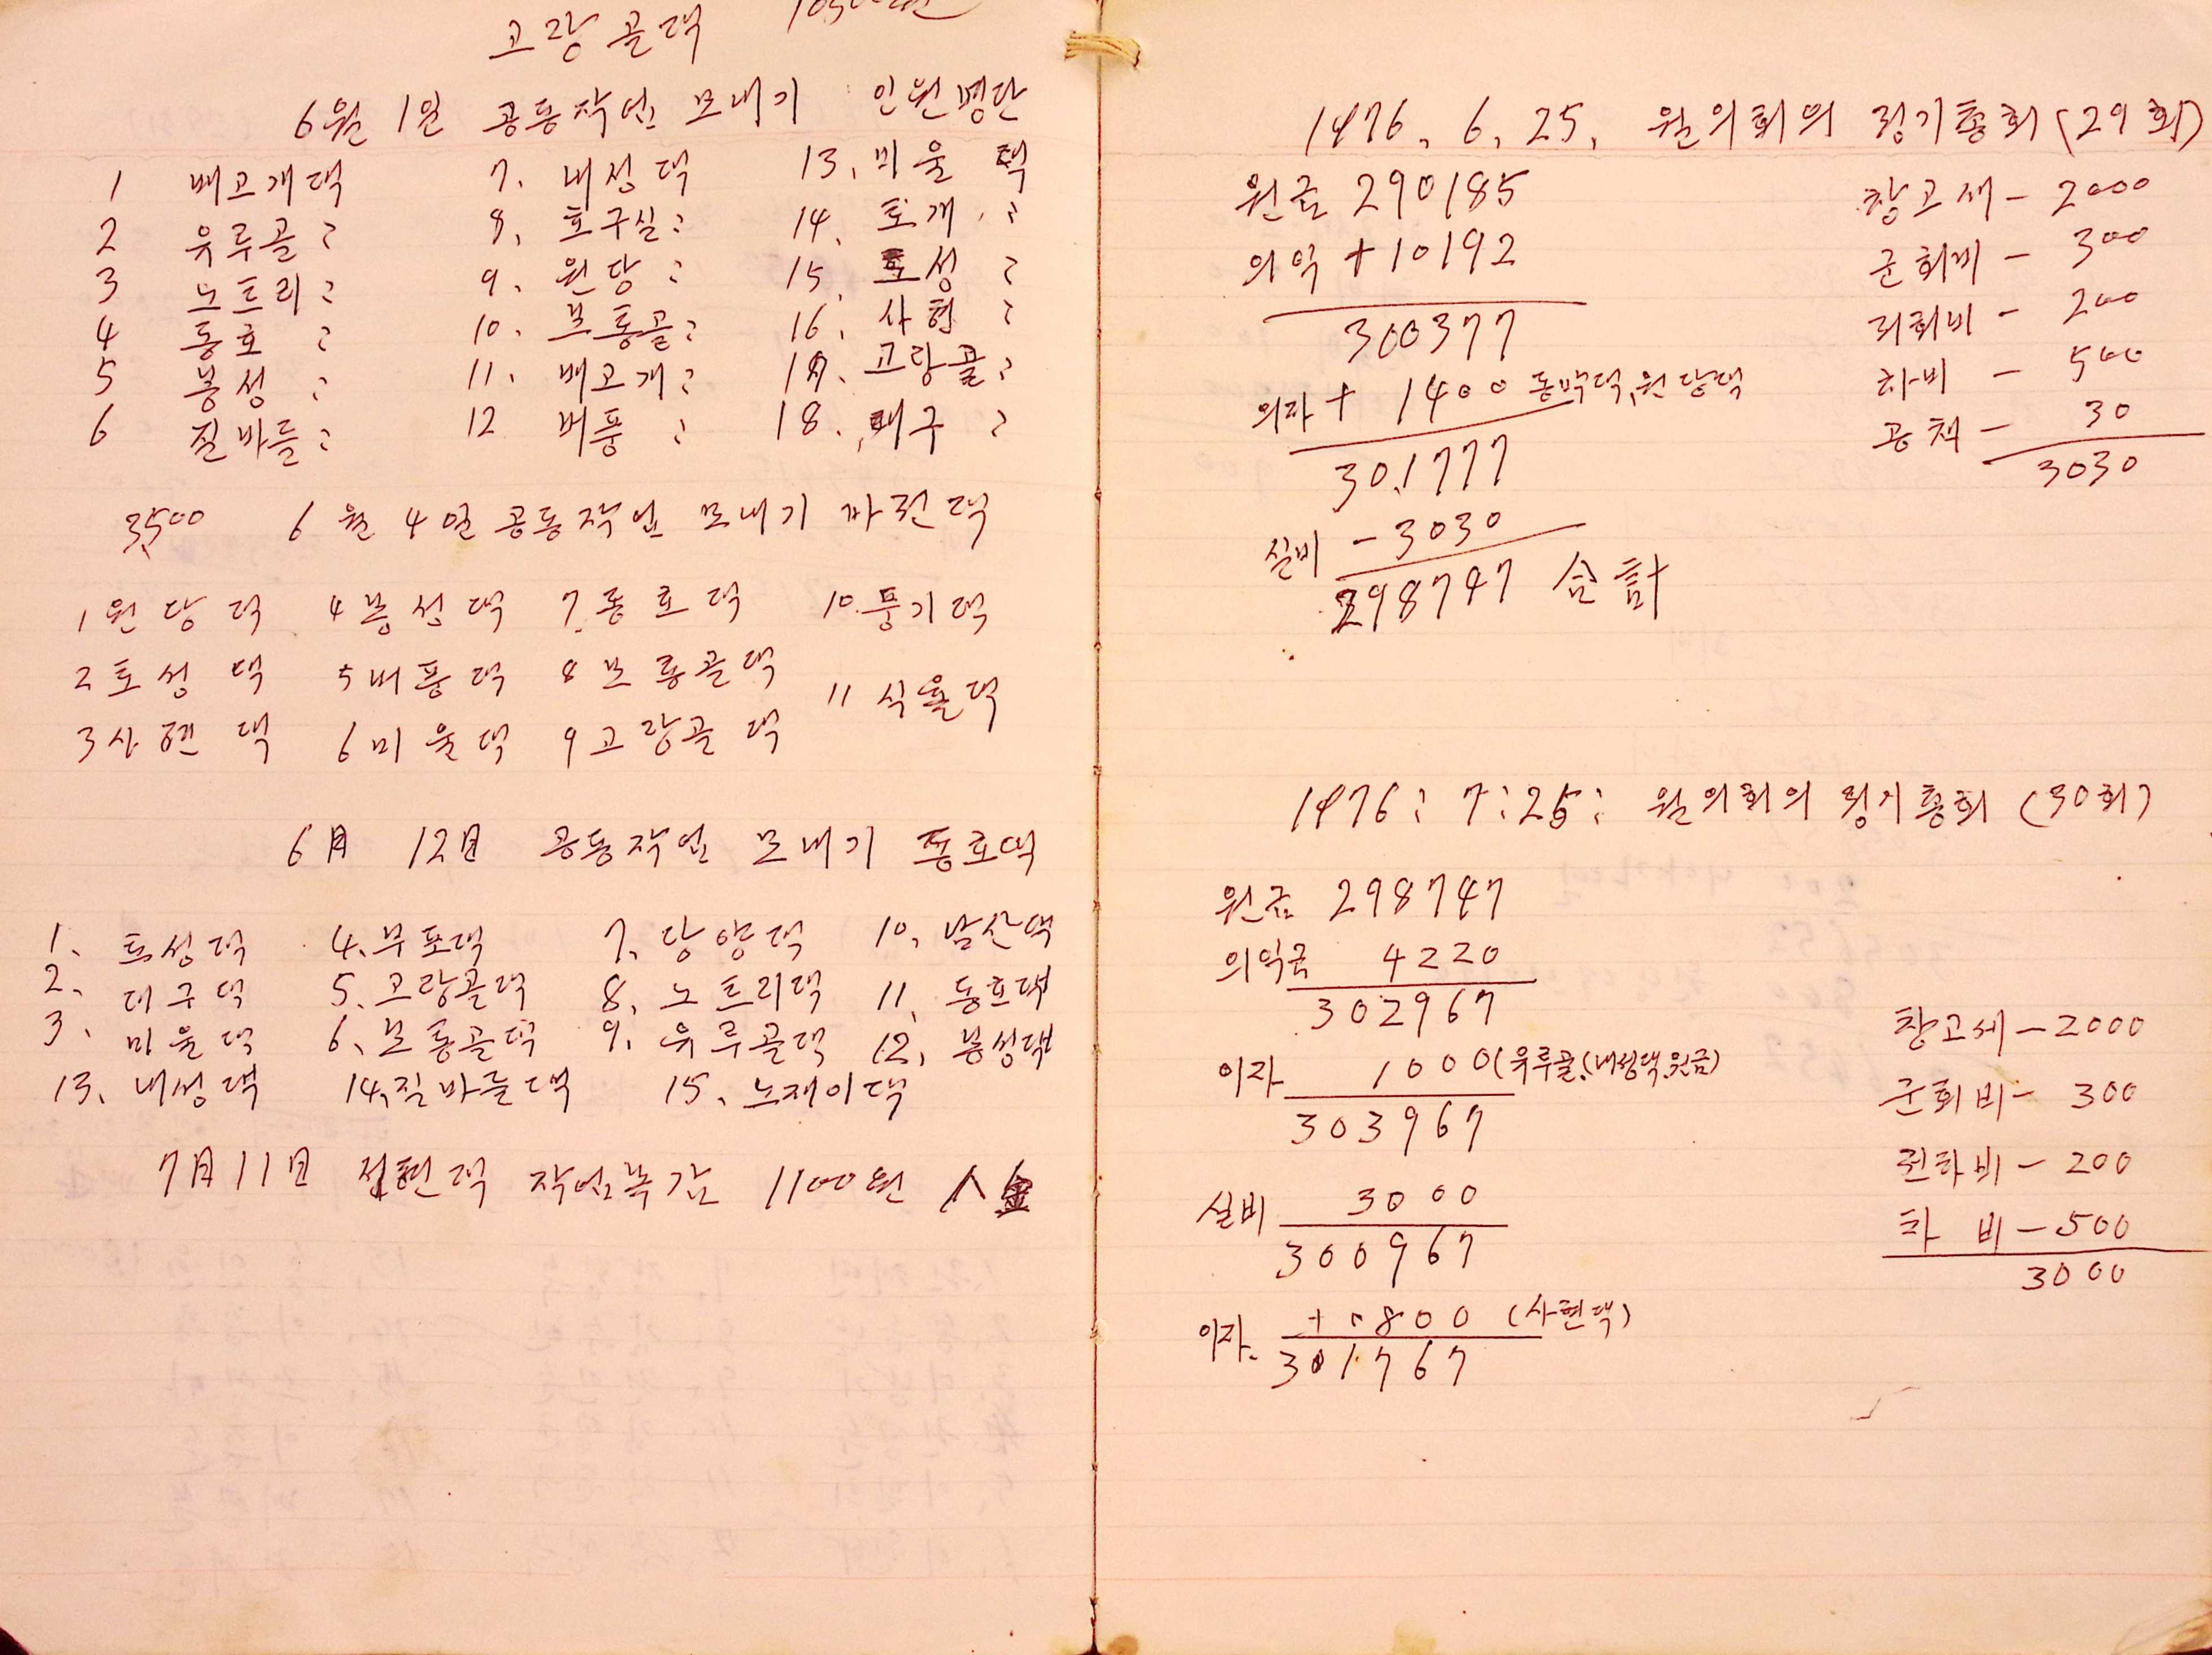 고랑골댁
6월 1일 공동작업 모내기 인원명단
1 배고개댁 7. 내성댁 13. 미울 댁
2 유루골 〃 8. 호구실 〃 14. 토개 〃
3 노트리 〃 9. 원당 〃 15. 토성 〃
4 동호 〃 10. 모통골 〃 16. 사현 〃
5 봉성 〃 11. 배고개 〃 17. 고랑골 〃
6 질바들 〃 12 버풍 〃 18. 대구 〃
3,500 6월 4일 공동작업 모내기 마전댁
1 원당댁 4 봉성댁 7. 동호댁 10. 풍기댁
2 토성댁 5 버풍댁 8 모통골댁
11 식율댁
3 사현댁 6 미울댁 9 고랑골댁
6月 12日 공동작업 모내기 동호댁
1. 토성댁 4. 부포댁 7. 당양댁 10. 남산댁
2. 대구댁 5. 고랑골댁 8. 노트리댁 11. 동호댁
3. 미울댁 6. 모통골댁 9. 유루골댁 12. 봉성댁
13. 내성댁 14. 질바들댁 15. 노재이댁
7月 11日 작업 1100원 入金
1976. 6. 25. 월의회의 정기총회 (29회)
원금 290185
의익 +10192
300377
의자 + 1400 동막댁, 원당댁
301777
실비 - 3030
298747 合計
창고세 - 2000
군회비 - 300
리회비 - 200
차비 - 500
공책 - 30
3030
1976: 7:25: 월의회의 정기총회 (30회)
원금 298747
의익금 4220
302967
이자 1000 (유루골, (내성댁, 원금)
303967
실비 3000
300967
이자. + 0800 (사현댁)
301767
창고세 - 2000
군회비 - 300
전화비 - 200
차 비 - 500
3000